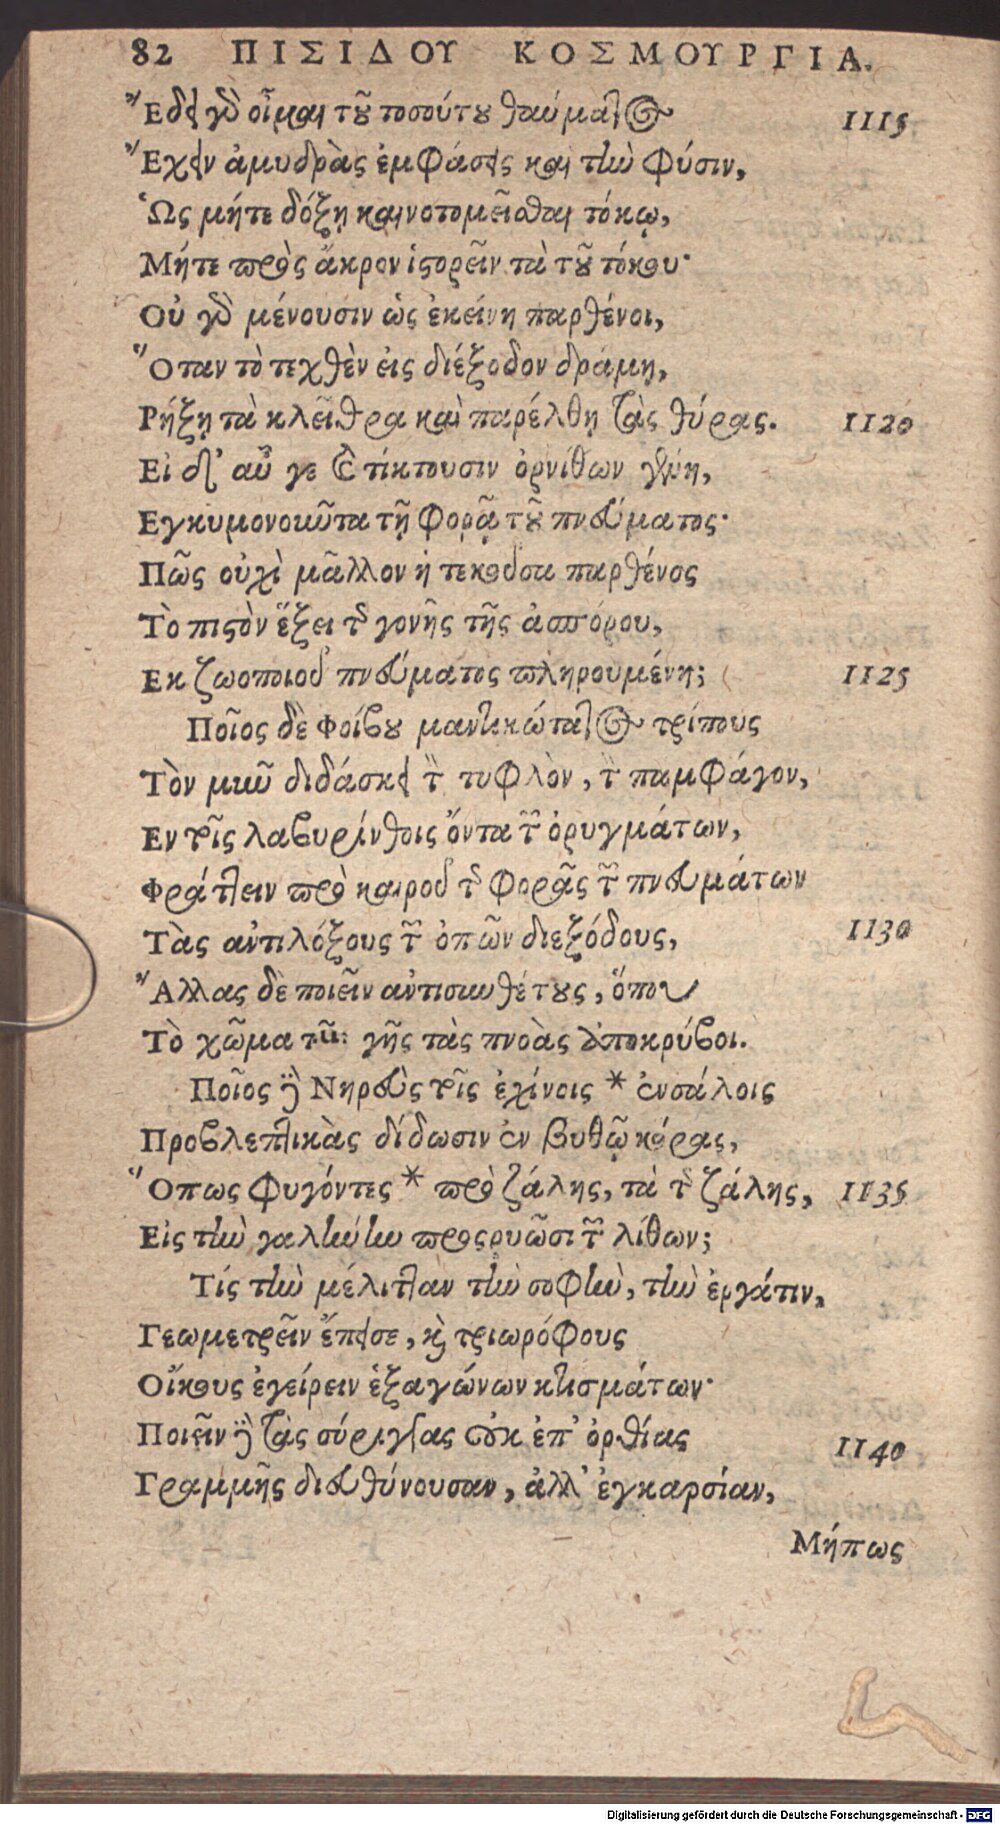 82 ΠΙΣΙΔΟΥ ΚΟΣΜΟΥΡΓΙΑ.
Ἔδει γὸ οἶμαι τοῦ τοσούτου θαύματος 1115
Ἔχειν ἀμυδρὰς ἐμφάσεις καὶ τὴν φύσιν,
Ὡς μήτε δόξῃ καινοτομεῖσθαι τόκῳ,
Μήτε πρὸς ἄκρον ἱστορεῖν τὰ τοῦ τόκου·
Οὐ γὸ μένουσιν ὡς ἐκείνη παρθένοι,
Ὅταν τὸ τεχθὲν εἰς διέξοδον δράμῃ,
Ρήξῃ τὰ κλεῖθρα καὶ παρέλθῃ τὰς θύρας. 1120
Εἰ δ' αὖ γε καὶ τίκτουσιν ὀρνίθων γένη,
Εγκυμονοῦντα τῇ φορᾷ τοῦ πνεύματος·
Πῶς οὐχὶ μᾶλλον ἡ τεκοῦσα παρθένος
Τὸ πιστὸν ἕξει τῆς γονῆς τῆς ἀσπόρου,
Εκ ζωοποιοῦ πνεύματος πληρουμένη; 1125
Ποῖος δὲ Φοίβου μαντικώτατος τρίπους
Τὸν μῦν διδάσκει τὸν τυφλὸν, τὸν παμφάγον,
Εν τοῖς λαβυρίνθοις ὄντα τῶν ὀρυγμάτων,
Φράττειν πρὸ καιροῦ τῆς φορᾶς τῶν πνευμάτων
Τὰς ἀντιλόξους τῶν ὀπῶν διεξόδους, 1130
Ἄλλας δὲ ποιεῖν ἀντισυνθέτους, ὅπου
Τὸ χῶμα τῆς γῆς τὰς πνοὰς ὑποκρύβοι.
Ποῖος δὲ Νηρεὺς τοῖς ἐχίνοις * ἐνσάλοις
Προβλεπτικὰς δίδωσιν ἐν βυθῷ κόρας,
Ὅπως φυγόντες * πρὸ ζάλης, τὰ τῆς ζάλης, 1135
Εἰς τὴν γαλήνην προσρυῶσι τῶν λίθων;
Τίς τὴν μέλιτταν τὴν σοφὴν, τὴν ἐργάτιν,
Γεωμετρεῖν ἔπεισε, καὶ τριωρόφους
Οἴκους ἐγείρειν ἑξαγώνων κτισμάτων·
Ποιεῖν δὲ τὰς σύριγγας οὐκ ἐπ' ὀρθίας 1140
Γραμμῆς διευθύνουσαν, ἀλλ' ἐγκαρσίαν,
Μήπως
Digitalisierung gefördert durch die Deutsche Forschungsgemeinschaft - DFG